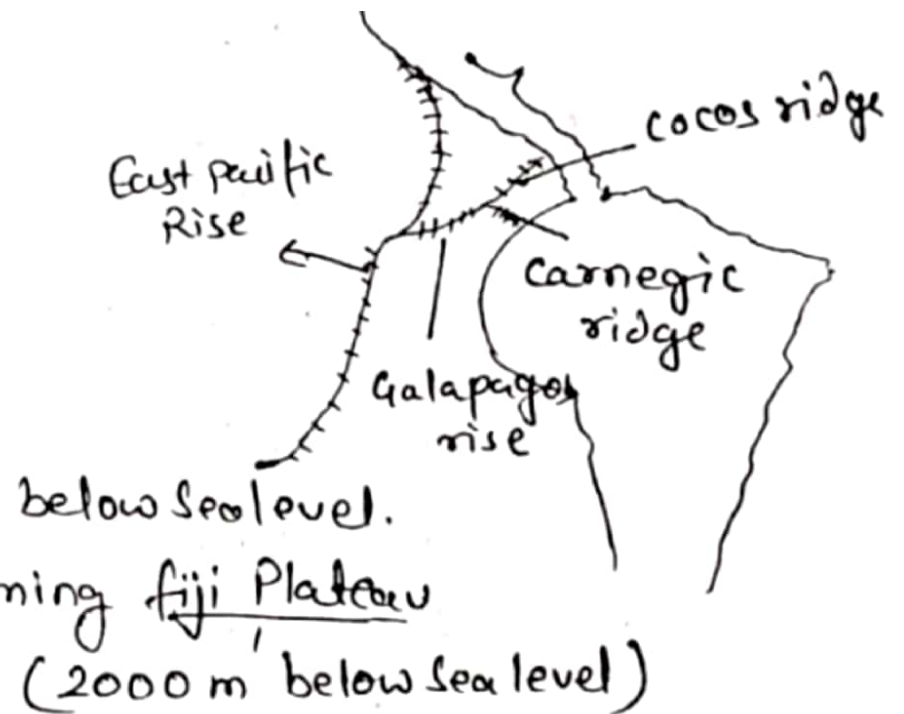 cocos ridge
East pacific
Rise
Carnegic
ridge
Galapagos
rise
below sea level.
ning fiji Plateau
(2000 m below sea level)